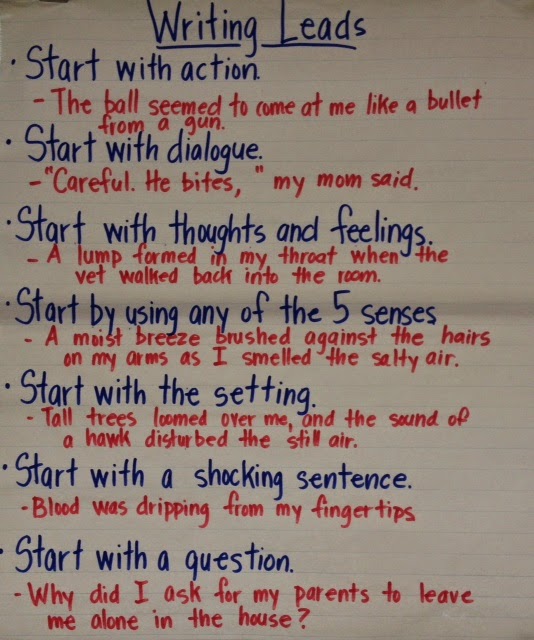 Writing Leads
· Start with action.
- The ball seemed to come at me like a bullet
from a gun.
· Start with dialogue.
- "Careful. He bites, " my mom said.
· Start with thoughts and feelings.
- A lump formed in my throat when the
vet walked back into the room.
· Start by using any of the 5 senses
- A moist breeze brushed against the hairs
on my arms as I smelled the salty air.
· Start with the setting.
- Tall trees loomed over me, and the sound of
a hawk disturbed the still air.
· Start with a shocking sentence.
- Blood was dripping from my fingertips
· Start with a question.
- Why did I ask for my parents to leave
me alone in the house?